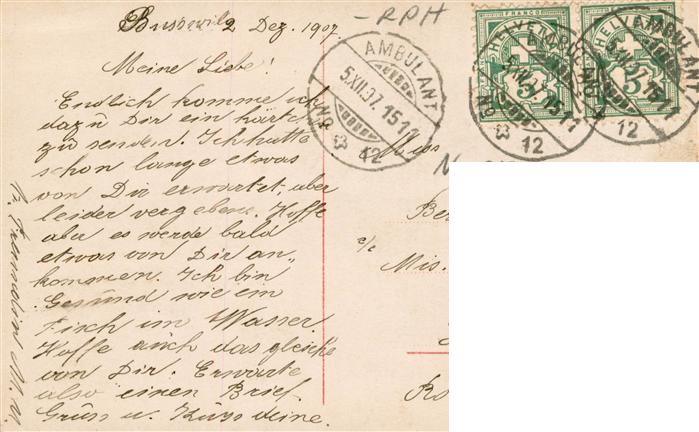 Busswil 2 Dez. 1907
Meine Liebe!
Endlich komme ich
dazu Dir ein kärtch
zu senden. Ich hatte
schon lange etwas
von Dir erwartet, aber
leider vergebens. Hoffe
aber es werde bald
etwas von Dir an„
kommen. Ich bin
Gesund wie ein
Fisch im Wasser.
Hoffe auch das gleiche
von Dir. Erwarte
also einen Brief
Gruss u. Kuss deine
Freundin M. W.
-RPH
AMBULANT
5.XII.07.151
No 12
FRANCO
HELVETIA
5
AMBULANT
5.XII.07.1511
No 12
HELVETIA
5
AMBULANT
5.XII.07.1511
12
Miss
N
Ber
c/c
Mis.
Ro